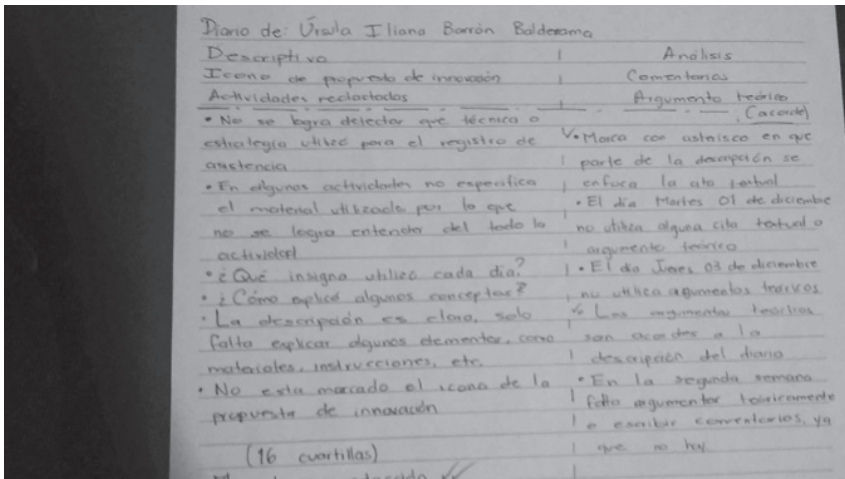 Diario de: Úrsula Iliana Barrón Balderama
Descriptivo
Icono de propuesta de innovación
Actividades redactadas
• No se logra detectar que técnica o
estrategia utilizó para el registro de
asistencia
• En algunas actividades no especifica
el material utilizado por lo que
no se logra entender del todo la
actividad
• ¿Qué insignia utilizó cada día?
• ¿Cómo explicó algunos conceptos?
• La descripción es clara, solo
falta explicar algunos elementos, como
materiales, instrucciones, etc.
• No esta marcado el icono de la
propuesta de innovación
(16 cuartillas)
Análisis
Comentarios
Argumento teórico
(acorde)
• Marca con asterisco en que
parte de la descripción se
enfoca la cita textual
• El día Martes 01 de diciembre
no utiliza alguna cita textual o
argumento teórico
• El día Jueves 03 de diciembre
no utiliza argumentos teóricos
Los argumentos teóricos
son acordes a la
descripción del diario
• En la segunda semana
falta argumentar teóricamente
o escribir comentarios, ya
que no hay